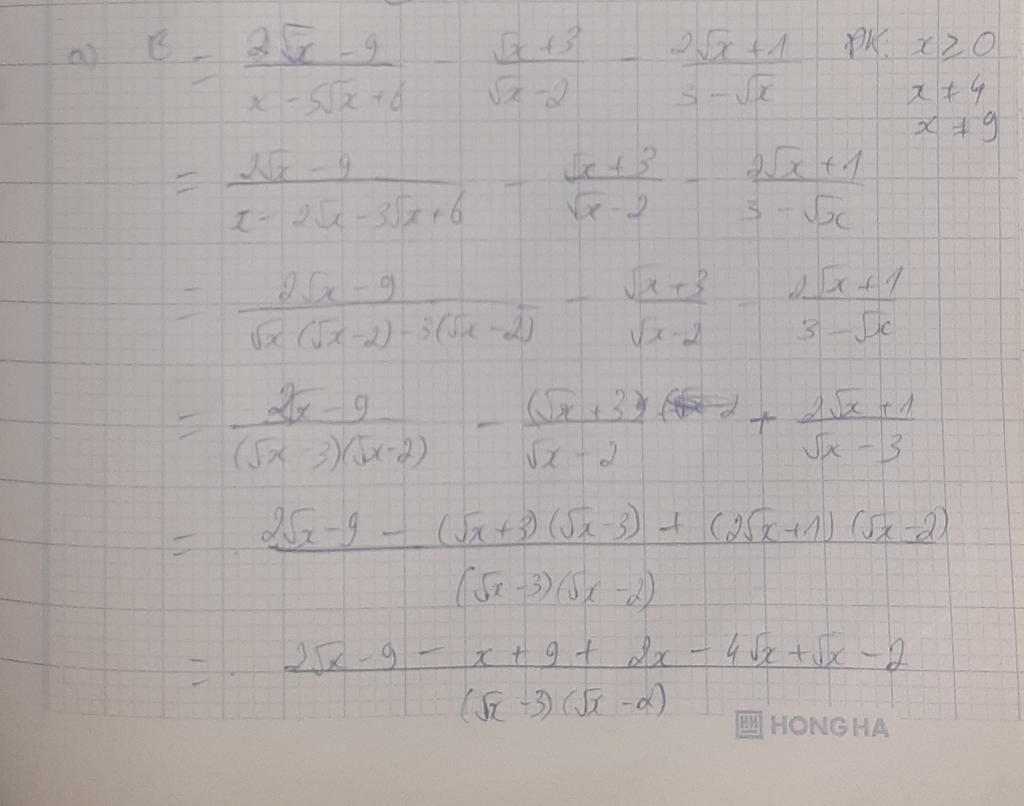 a) B = (2√x - 9)/(x - 5√x + 6) - (√x + 3)/(√x - 2) - (2√x + 1)/(3 - √x) ĐK: x ≥ 0
x ≠ 4
x ≠ 9
= (2√x - 9)/(x - 2√x - 3√x + 6) - (√x + 3)/(√x - 2) - (2√x + 1)/(3 - √x)
= (2√x - 9)/(√x(√x - 2) - 3(√x - 2)) - (√x + 3)/(√x - 2) - (2√x + 1)/(3 - √x)
= (2√x - 9)/((√x - 3)(√x - 2)) - (√x + 3)/(√x - 2) + (2√x + 1)/(√x - 3)
= (2√x - 9 - (√x + 3)(√x - 3) + (2√x + 1)(√x - 2))/((√x - 3)(√x - 2))
= (2√x - 9 - x + 9 + 2x - 4√x + √x - 2)/((√x - 3)(√x - 2))
HONG HA